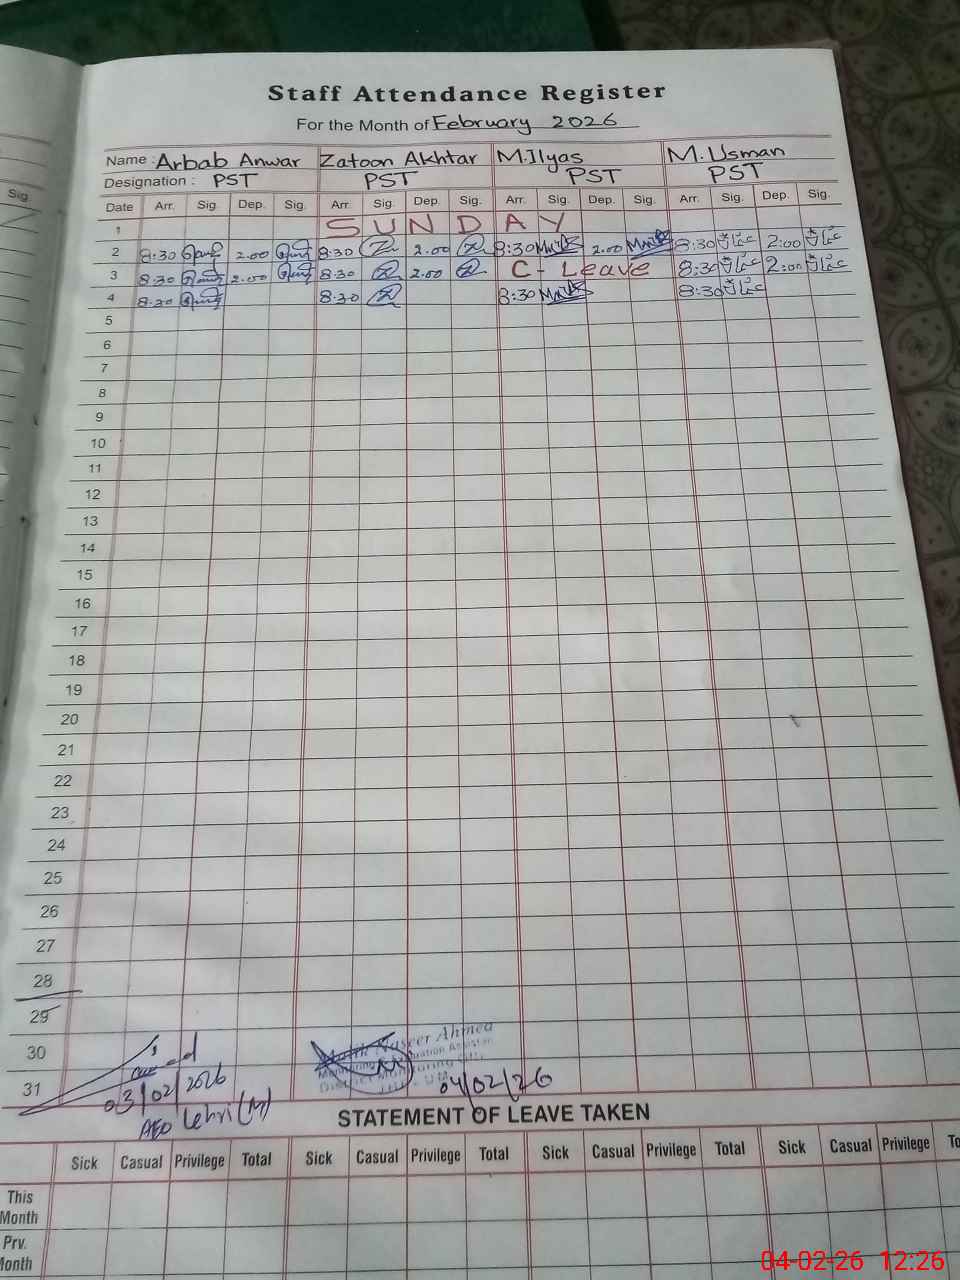 Sig.
Staff Attendance Register
For the Month of February 2026
Name : Arbab Anwar Zatoon Akhtar M.Ilyas M. Usman
Designation : PST PST PST PST
Date Arr. Sig. Dep. Sig. Arr. Sig. Dep. Sig. Arr. Sig. Dep. Sig. Arr. Sig. Dep. Sig.
1 SUNDAY
2 8:30 2.00 8:30 2.00 8:30 2.00 8:30 2:00
3 8:30 2.00 8:30 2.00 C- Leave 8:30 2:00
4 8:30 8:30 8:30 8:30
5
6
7
8
9
10
11
12
13
14
15
16
17
18
19
20
21
22
23
24
25
26
27
28
29
30
31
03/02/2026
AEO Lehri (M)
Naseer Ahmed
District Monitoring
04/02/26
STATEMENT OF LEAVE TAKEN
Sick Casual Privilege Total Sick Casual Privilege Total Sick Casual Privilege Total Sick Casual Privilege To
This Month
Prv. Month
04-02-26 12:26